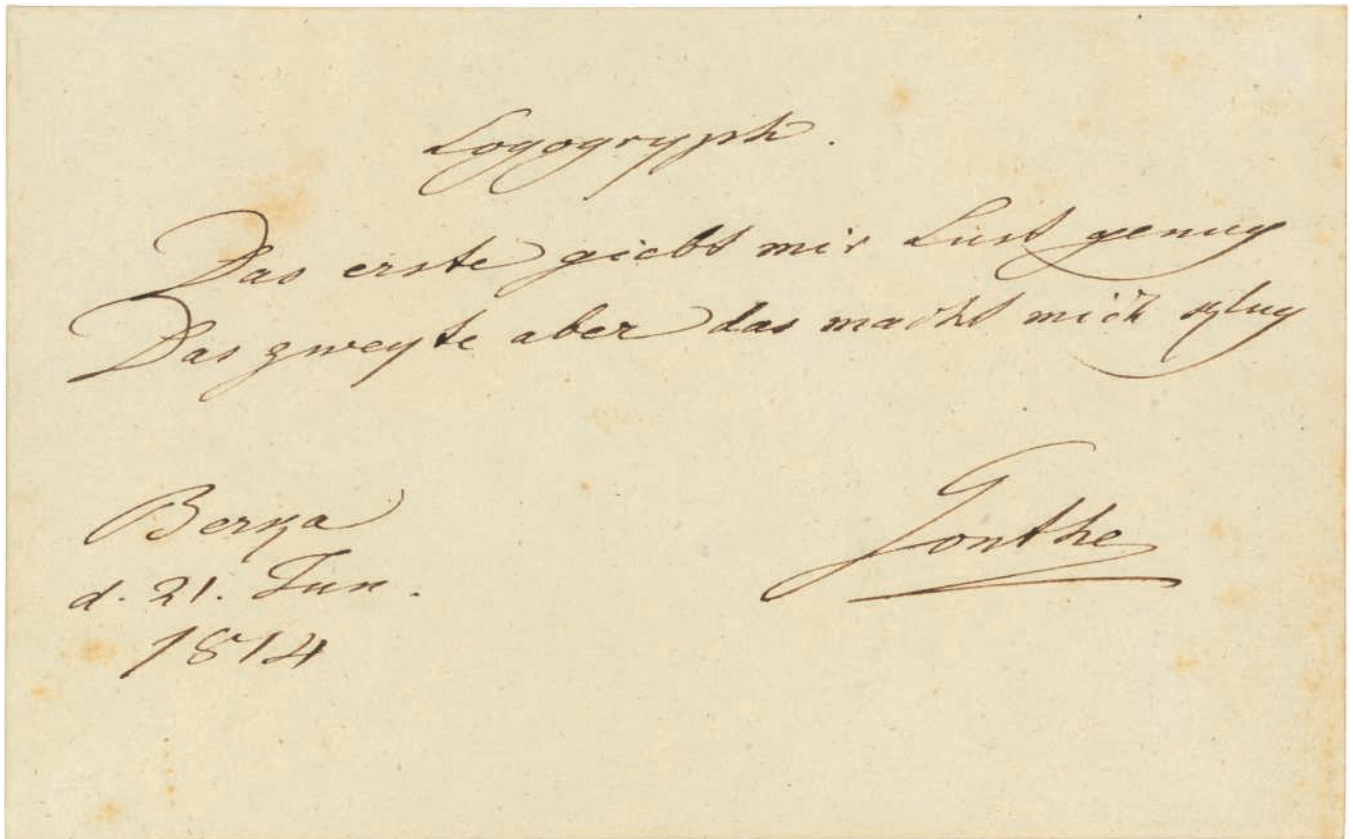 Logogryph.
Das erste giebt mir Lust genug
Das zweyte aber das macht mich klug
Berka
d. 21. Jun.
1814
Goethe